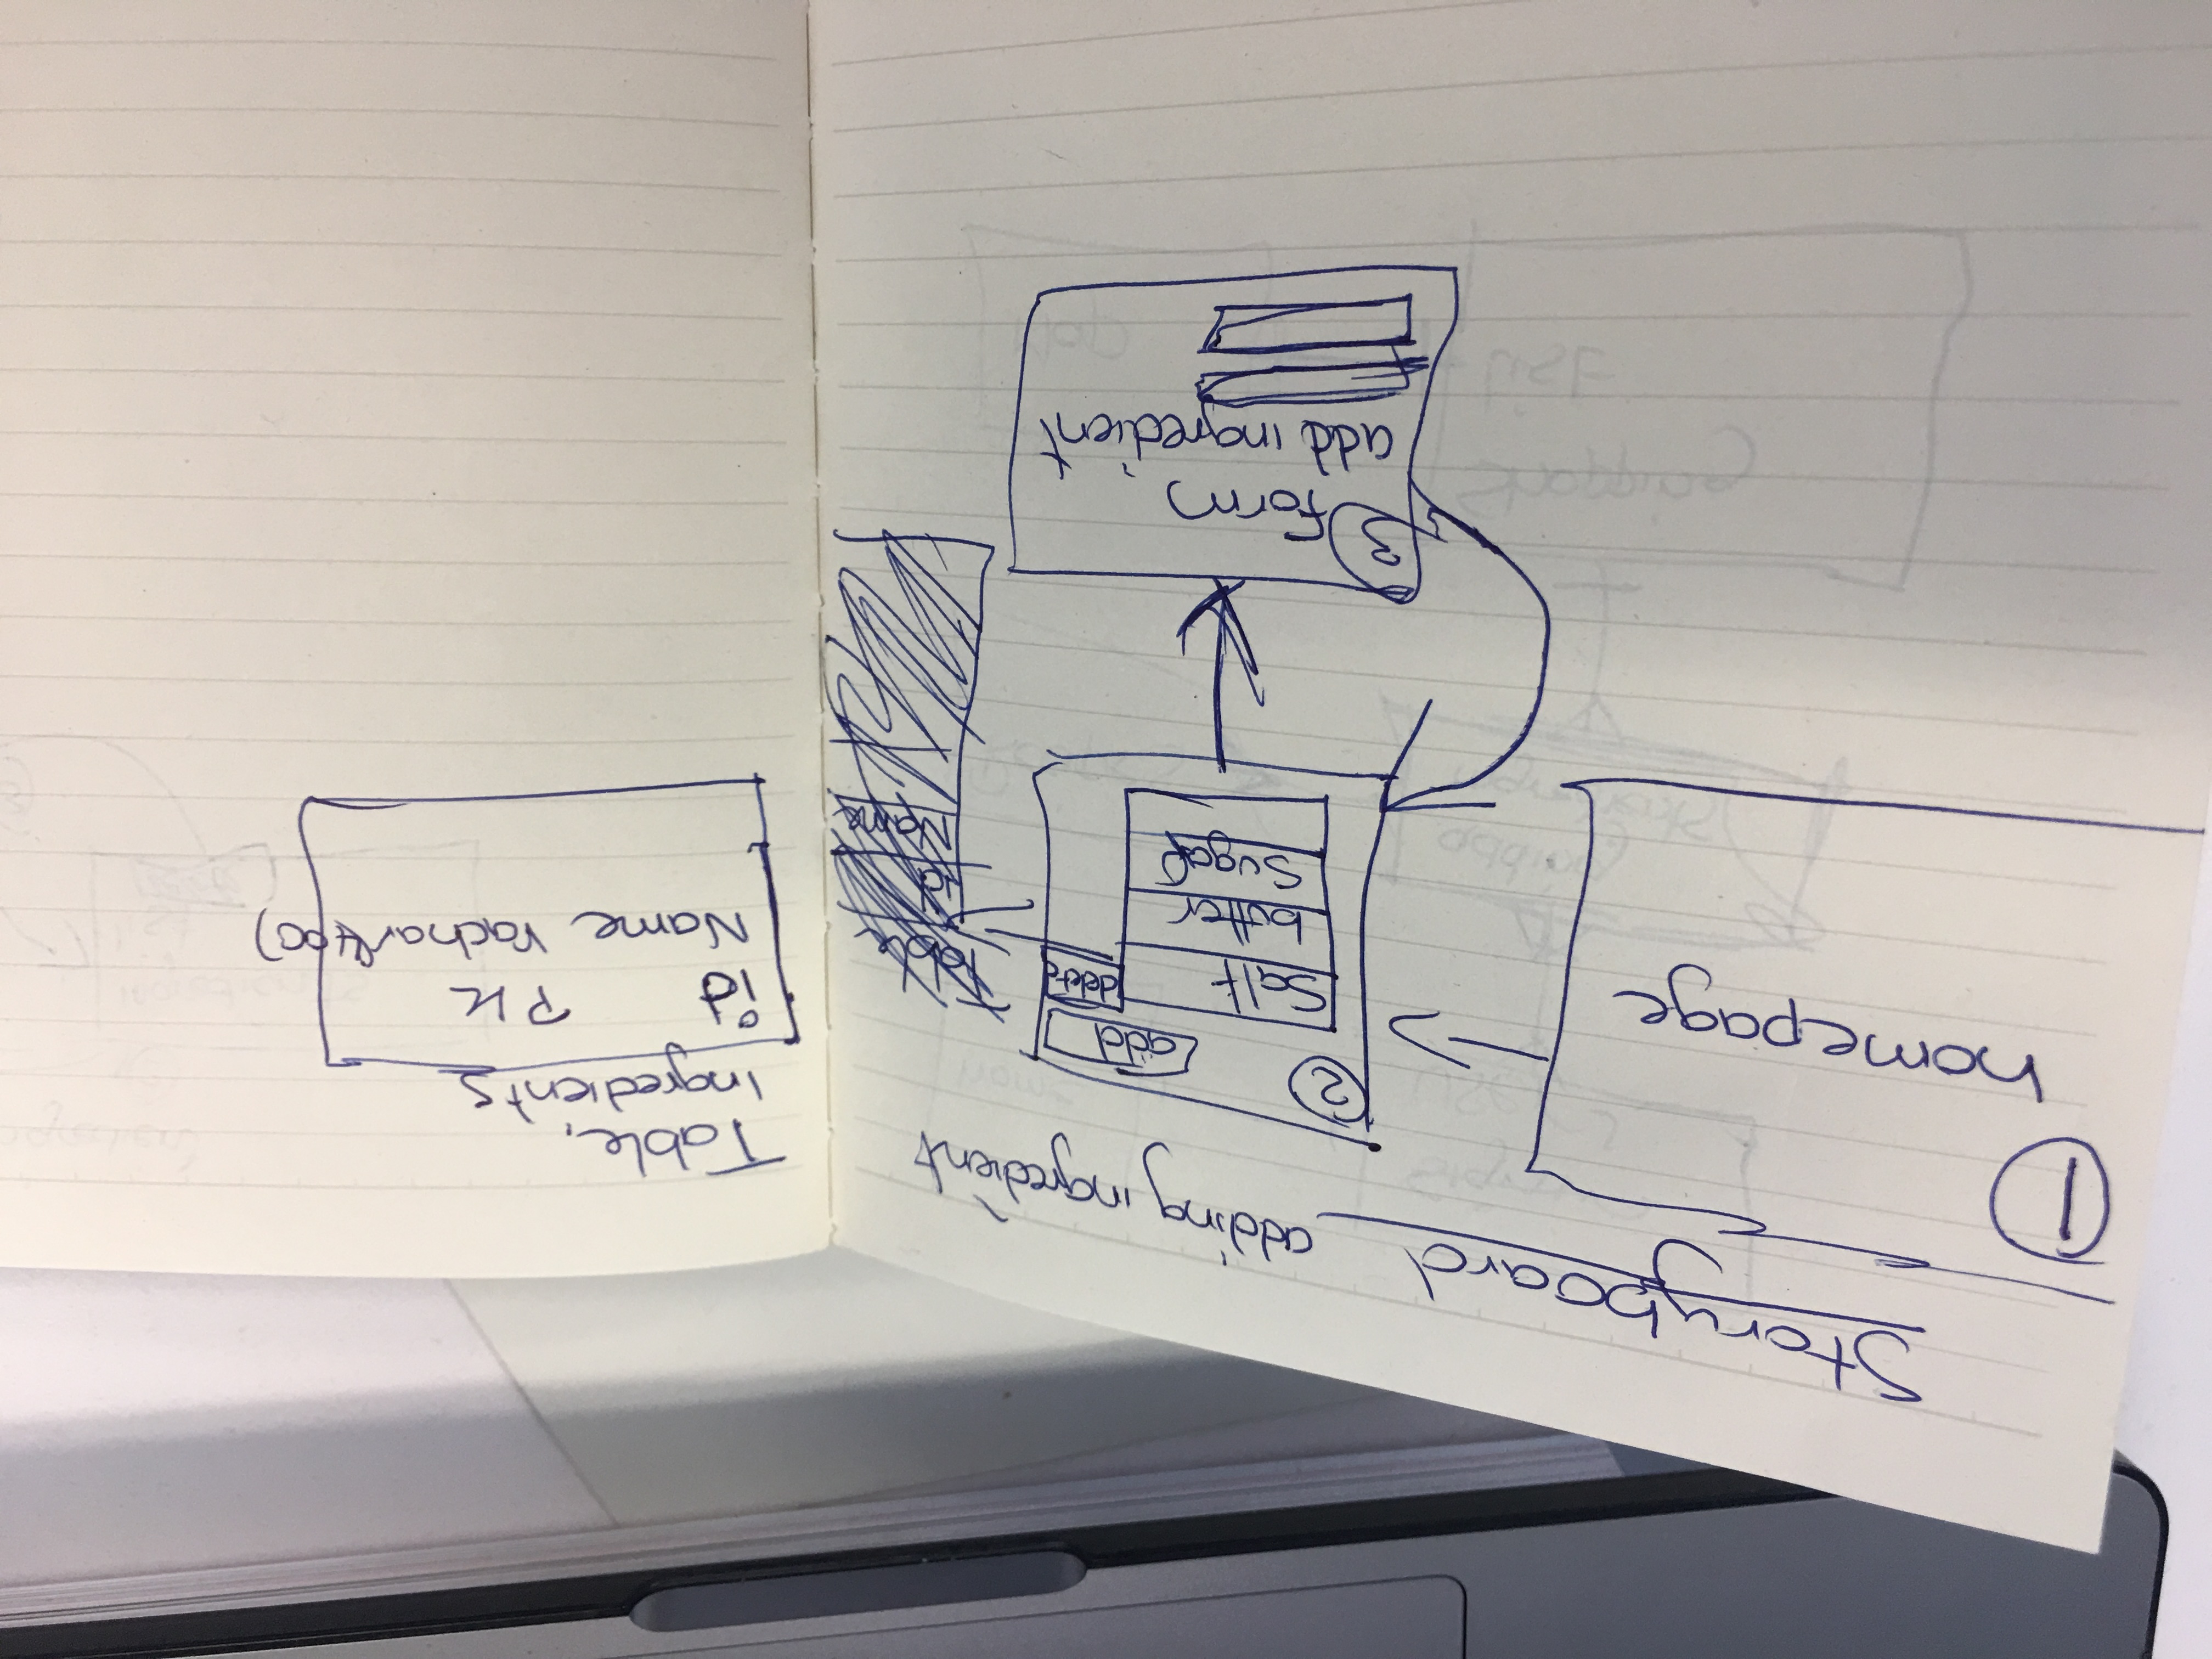 Storyboard adding ingredient
1
homepage
2
add
delete
Salt
butter
Sugar
3 Form
add ingredient
Table
id
Name
Table.
Ingredients
id PK
Name vachar(400)